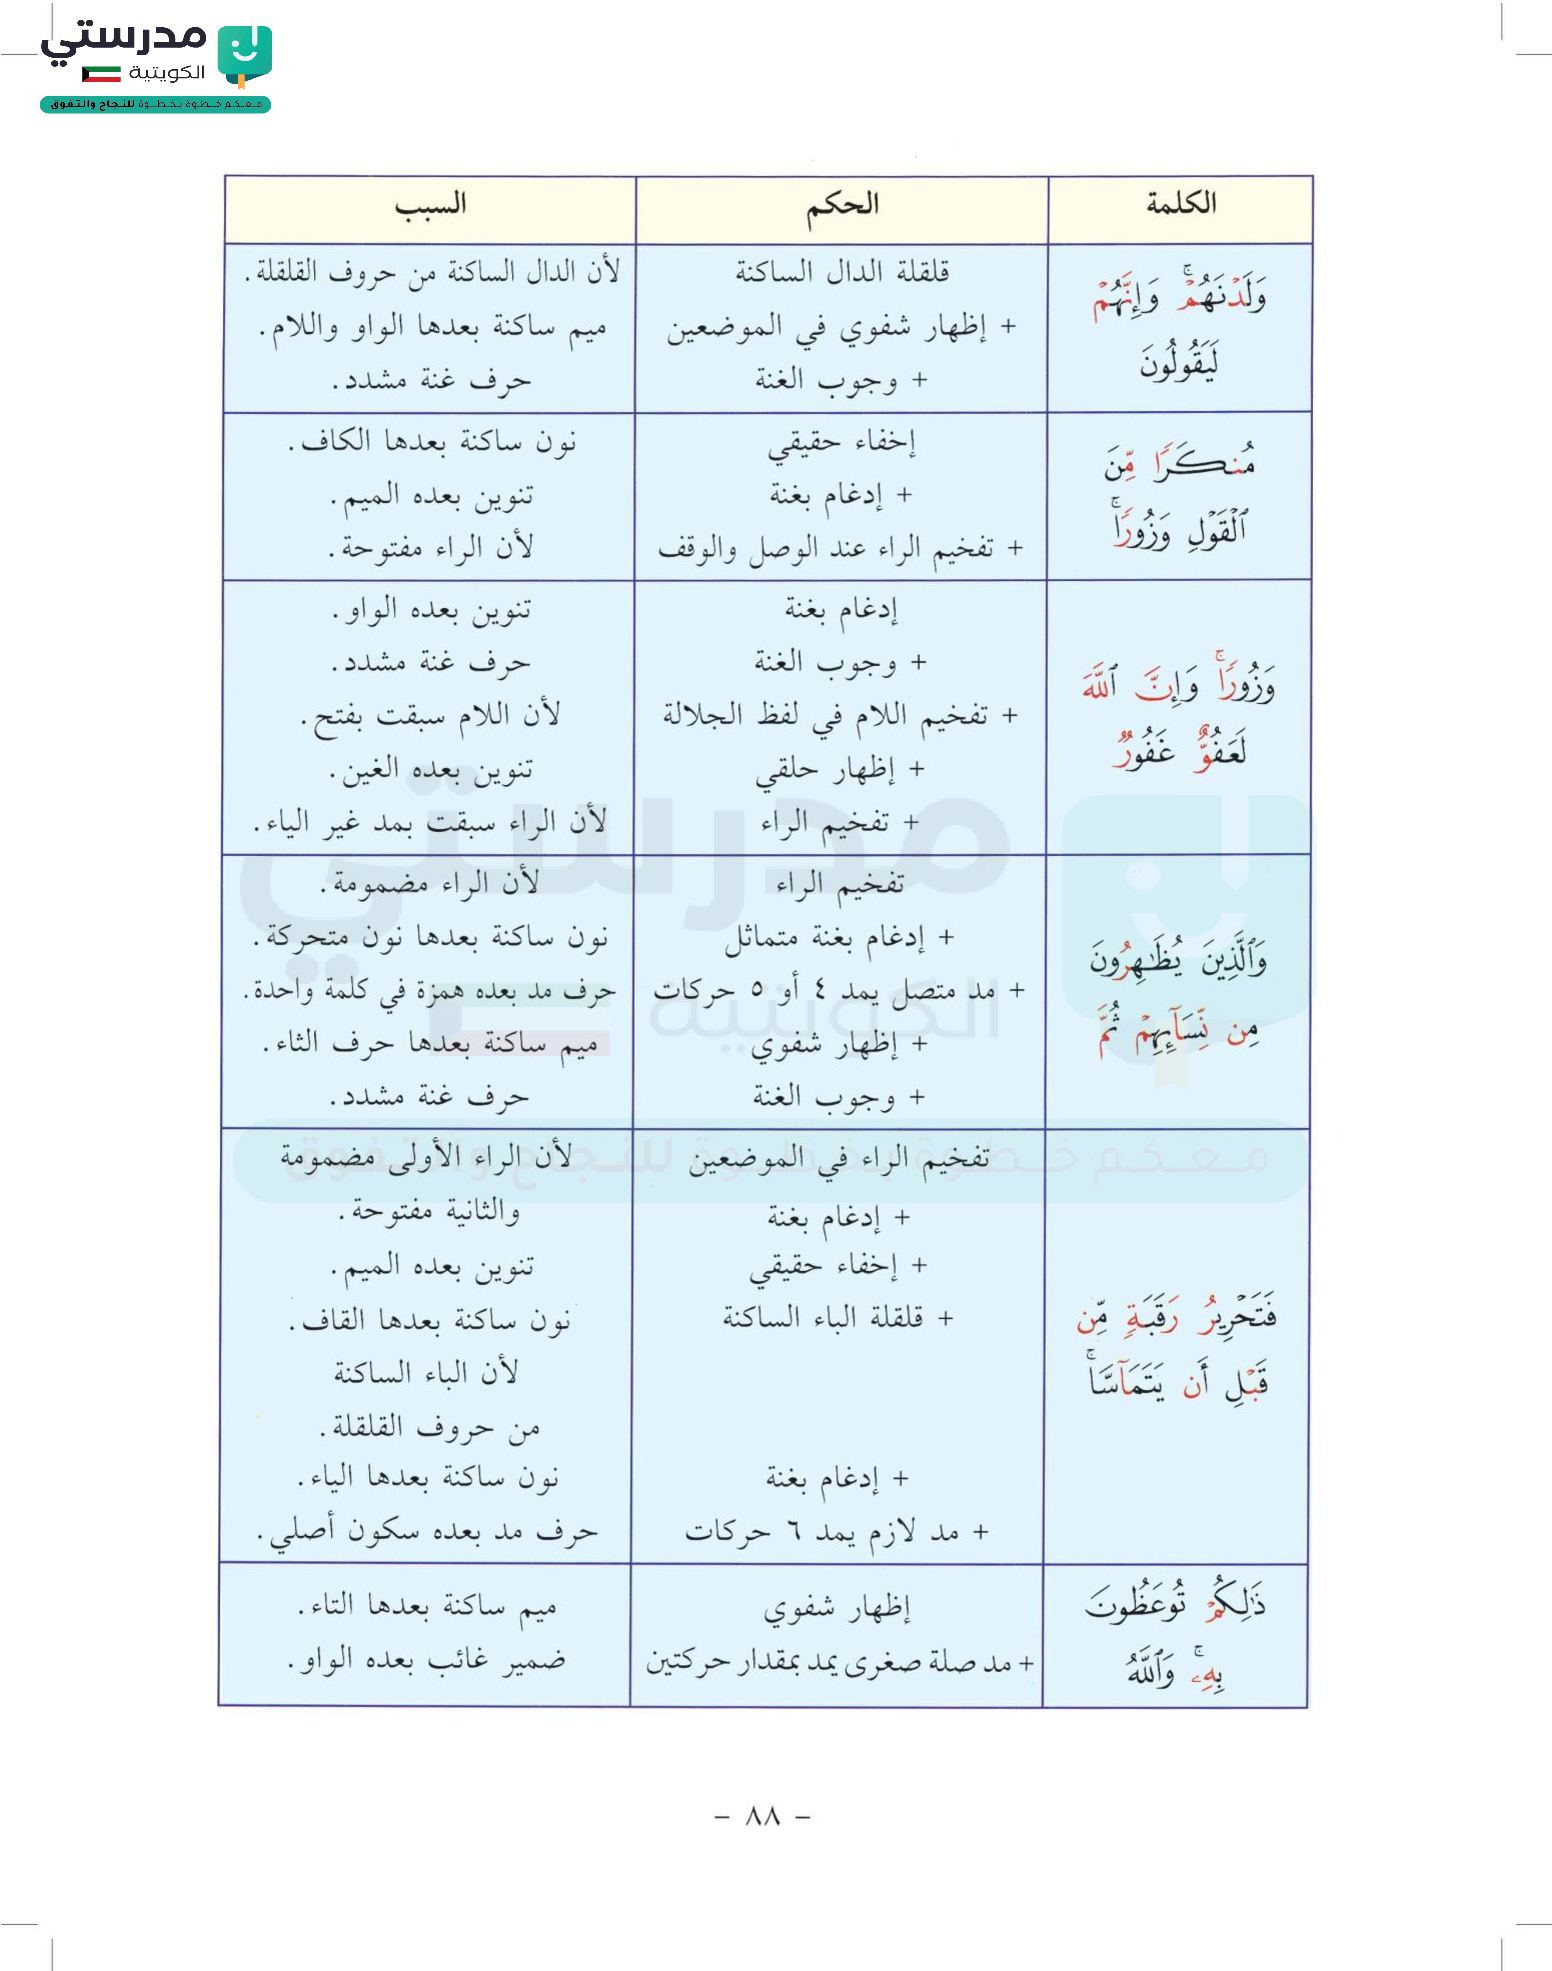 مدرستي
الكويتية
معكم خطوة بخطوة للنجاح والتفوق
الكلمة الحكم السبب
وَلَدْنَهُمْۚ وَإِنَّهُمْ
لَيَقُولُونَ
قلقلة الدال الساكنة
+ إظهار شفوي في الموضعين
+ وجوب الغنة
لأن الدال الساكنة من حروف القلقلة.
ميم ساكنة بعدها الواو واللام.
حرف غنة مشدد.
مُنكَرًا مِّنَ
ٱلْقَوْلِ وَزُورًاۚ
إخفاء حقيقي
+ إدغام بغنة
+ تفخيم الراء عند الوصل والوقف
نون ساكنة بعدها الكاف.
تنوين بعده الميم.
لأن الراء مفتوحة.
وَزُورًاۚ وَإِنَّ ٱللَّهَ
لَعَفُوٌّ غَفُورٌ
إدغام بغنة
+ وجوب الغنة
+ تفخيم اللام في لفظ الجلالة
+ إظهار حلقي
+ تفخيم الراء
تنوين بعده الواو.
حرف غنة مشدد.
لأن اللام سبقت بفتح.
تنوين بعده الغين.
لأن الراء سبقت بمد غير الياء.
وَٱلَّذِينَ يُظَٰهِرُونَ
مِن نِّسَآئِهِمْ ثُمَّ
تفخيم الراء
+ إدغام بغنة متماثل
+ مد متصل يمد ٤ أو ٥ حركات
+ إظهار شفوي
+ وجوب الغنة
لأن الراء مضمومة.
نون ساكنة بعدها نون متحركة.
حرف مد بعده همزة في كلمة واحدة.
ميم ساكنة بعدها حرف الثاء.
حرف غنة مشدد.
فَتَحْرِيرُ رَقَبَةٍ مِّن
قَبْلِ أَن يَتَمَآسَّاۚ
تفخيم الراء في الموضعين
+ إدغام بغنة
+ إخفاء حقيقي
+ قلقلة الباء الساكنة
+ إدغام بغنة
+ مد لازم يمد ٦ حركات
لأن الراء الأولى مضمومة
والثانية مفتوحة.
تنوين بعده الميم.
نون ساكنة بعدها القاف.
لأن الباء الساكنة
من حروف القلقلة.
نون ساكنة بعدها الياء.
حرف مد بعده سكون أصلي.
ذَٰلِكُمْ تُوعَظُونَ
بِهِۦۚ وَٱللَّهُ
إظهار شفوي
+ مد صلة صغرى يمد بمقدار حركتين
ميم ساكنة بعدها التاء.
ضمير غائب بعده الواو.
مدرستي
الكويتية
معكم خطوة بخطوة للنجاح والتفوق
- ٨٨ -